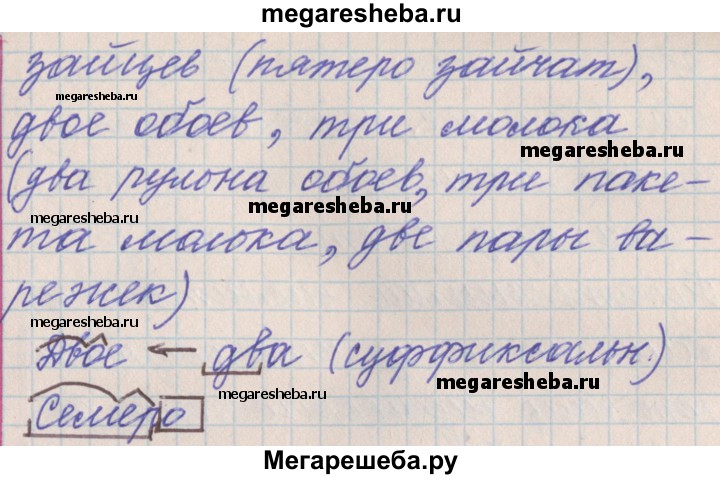 megaresheba.ru
зайцев (пятеро зайчат),
megaresheba.ru
двое обоев, три молока
megaresheba.ru
(два рулона обоев, три паке-
megaresheba.ru megaresheba.ru
та молока, две пары ва-
режек)
megaresheba.ru
Двое ← два (суффиксальн.)
megaresheba.ru megaresheba.ru
Семеро
Мегарешеба.ру